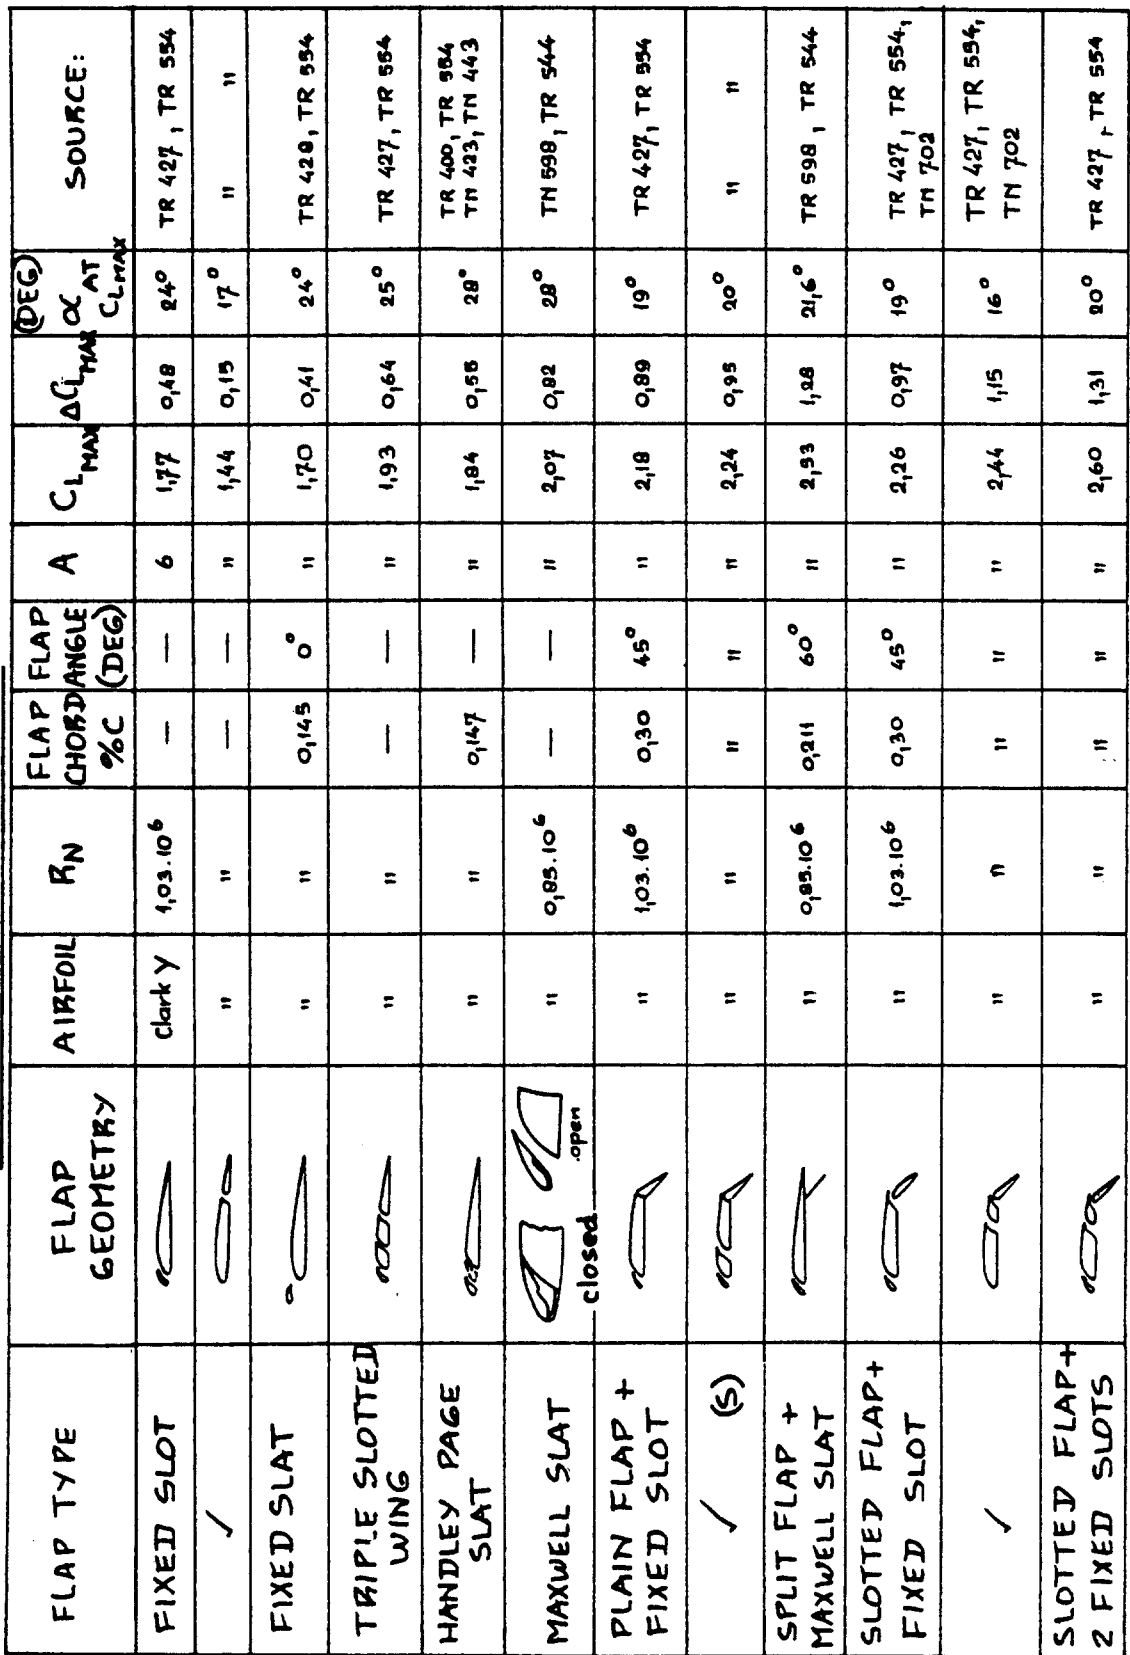 FLAP TYPE
FLAP
GEOMETRY
AIRFOIL
RN
FLAP
CHORD
%C
FLAP
ANGLE
(DEG)
A
CL MAX
ΔCL MAX
(DEG)
α AT
CL MAX
SOURCE:
FIXED SLOT
clark Y
1,03.10⁶
—
—
6
1,77
0,48
24°
TR 427, TR 554
✓
"
"
—
—
"
1,44
0,15
17°
" "
FIXED SLAT
"
"
0,145
0°
"
1,70
0,41
24°
TR 428, TR 554
TRIPLE SLOTTED
WING
"
"
—
—
"
1,93
0,64
25°
TR 427, TR 554
HANDLEY PAGE
SLAT
"
"
0,147
—
"
1,84
0,55
28°
TR 400, TR 554
TN 423, TN 443
MAXWELL SLAT
closed
open
"
0,85.10⁶
—
—
"
2,07
0,82
28°
TN 598, TR 544
PLAIN FLAP +
FIXED SLOT
"
1,03.10⁶
0,30
45°
"
2,18
0,89
19°
TR 427, TR 554
✓ (S)
"
"
"
"
"
2,24
0,95
20°
" "
SPLIT FLAP +
MAXWELL SLAT
"
0,85.10⁶
0,211
60°
"
2,53
1,28
21,6°
TR 598, TR 544
SLOTTED FLAP+
FIXED SLOT
"
1,03.10⁶
0,30
45°
"
2,26
0,97
19°
TR 427, TR 554,
TN 702
✓
"
"
"
"
"
2,44
1,15
16°
TR 427, TR 554,
TN 702
SLOTTED FLAP+
2 FIXED SLOTS
"
"
"
"
"
2,60
1,31
20°
TR 427, TR 554